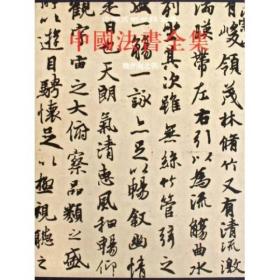 中國法書全集
魏晉南北朝
有峻領茂林脩竹又有清流激
湍暎帶左右引以為流觴曲水
列坐其次雖無絲竹管弦之
盛一觴一詠亦足以暢叙幽情
是日也天朗氣清惠風和暢仰
觀宇宙之大俯察品類之盛
所以遊目騁懷足以極視聽之